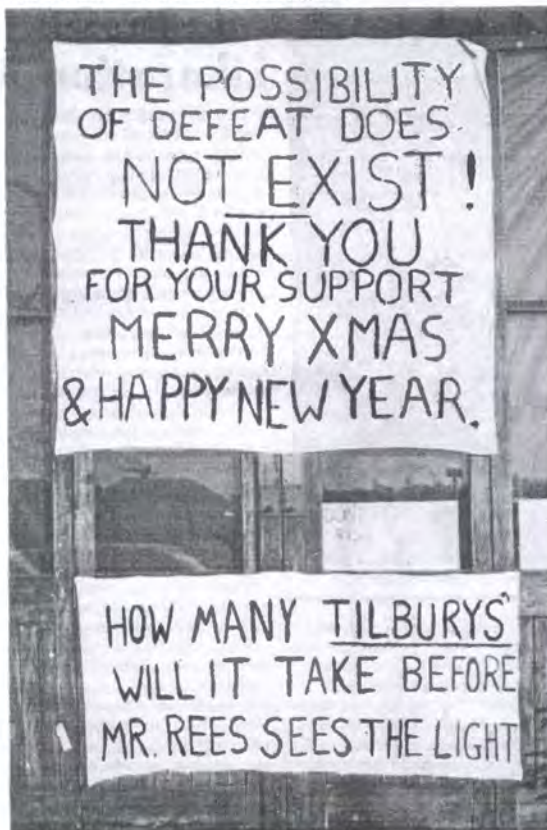 THE POSSIBILITY
OF DEFEAT DOES
NOT EXIST!
THANK YOU
FOR YOUR SUPPORT
MERRY XMAS
& HAPPY NEW YEAR.
HOW MANY TILBURYS
WILL IT TAKE BEFORE
MR. REES SEES THE LIGHT